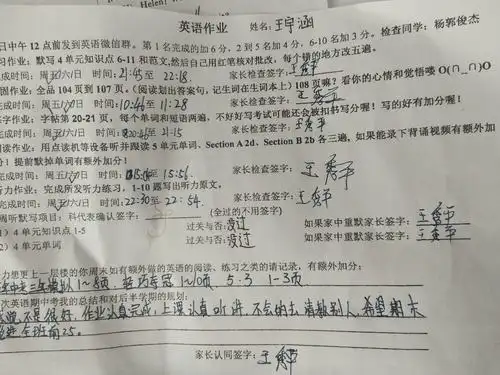 英语作业 姓名:王宇涵
日中午12点前发到英语微信群。第1名完成的加6分,2到5名加4分,6-10名加3分。检查同学:杨郭俊杰
习作业:默写4单元知识点6-11和范文,然后自己用红笔核对批改,每个错的地方改五遍。
完成时间:周五/六/日 时间:21:45至22:18. 家长检查签字:
固作业:全品104页到107页。(阅读划出答案句,记生词在生词本上)108页嘛?看你的心情和觉悟喽O(∩_∩)O
完成时间:周五/六/日 时间:10:44至11:28 家长检查签字:
字作业:字帖第20-21页,每个单词和短语两遍,不好好写考试可能还会被扣书写分喔!写的好有加分喔!
时间:周五/六/日 时间:20:40至21:15 家长检查签字:
读作业:用点读机等设备听并跟读5单元单词、Section A 2d、Section B 2b各三遍,如果能录下背诵视频有额外加
分!提前默掉单词有额外加分!
完成时间:周五/六/日 至15:56. 家长检查签字:
听力作业:完成所发听力练习,1-10题写出听力原文,
完成时间:周五/六/日 时间:22:30至22:54. 家长检查签字:
周听默写项目:科代表确认签字: (全过的不用签字)
1)4单元知识点1-5 过关与否:没过 如果家中重默家长签字:
2)4单元单词 过关与否:没过 如果家中重默家长签字:
力想更上一层楼的你周末如有额外做的英语的阅读、练习之类的请记录,有额外加分:
1-8页, 1-10页 5.3 1-3页.
次英语期中考我的总结和对后半学期的规划:
不是很好,作业认真完成,上课认真听讲,不会的去请教别人,希望期末
进全班前25。
家长认同签字: